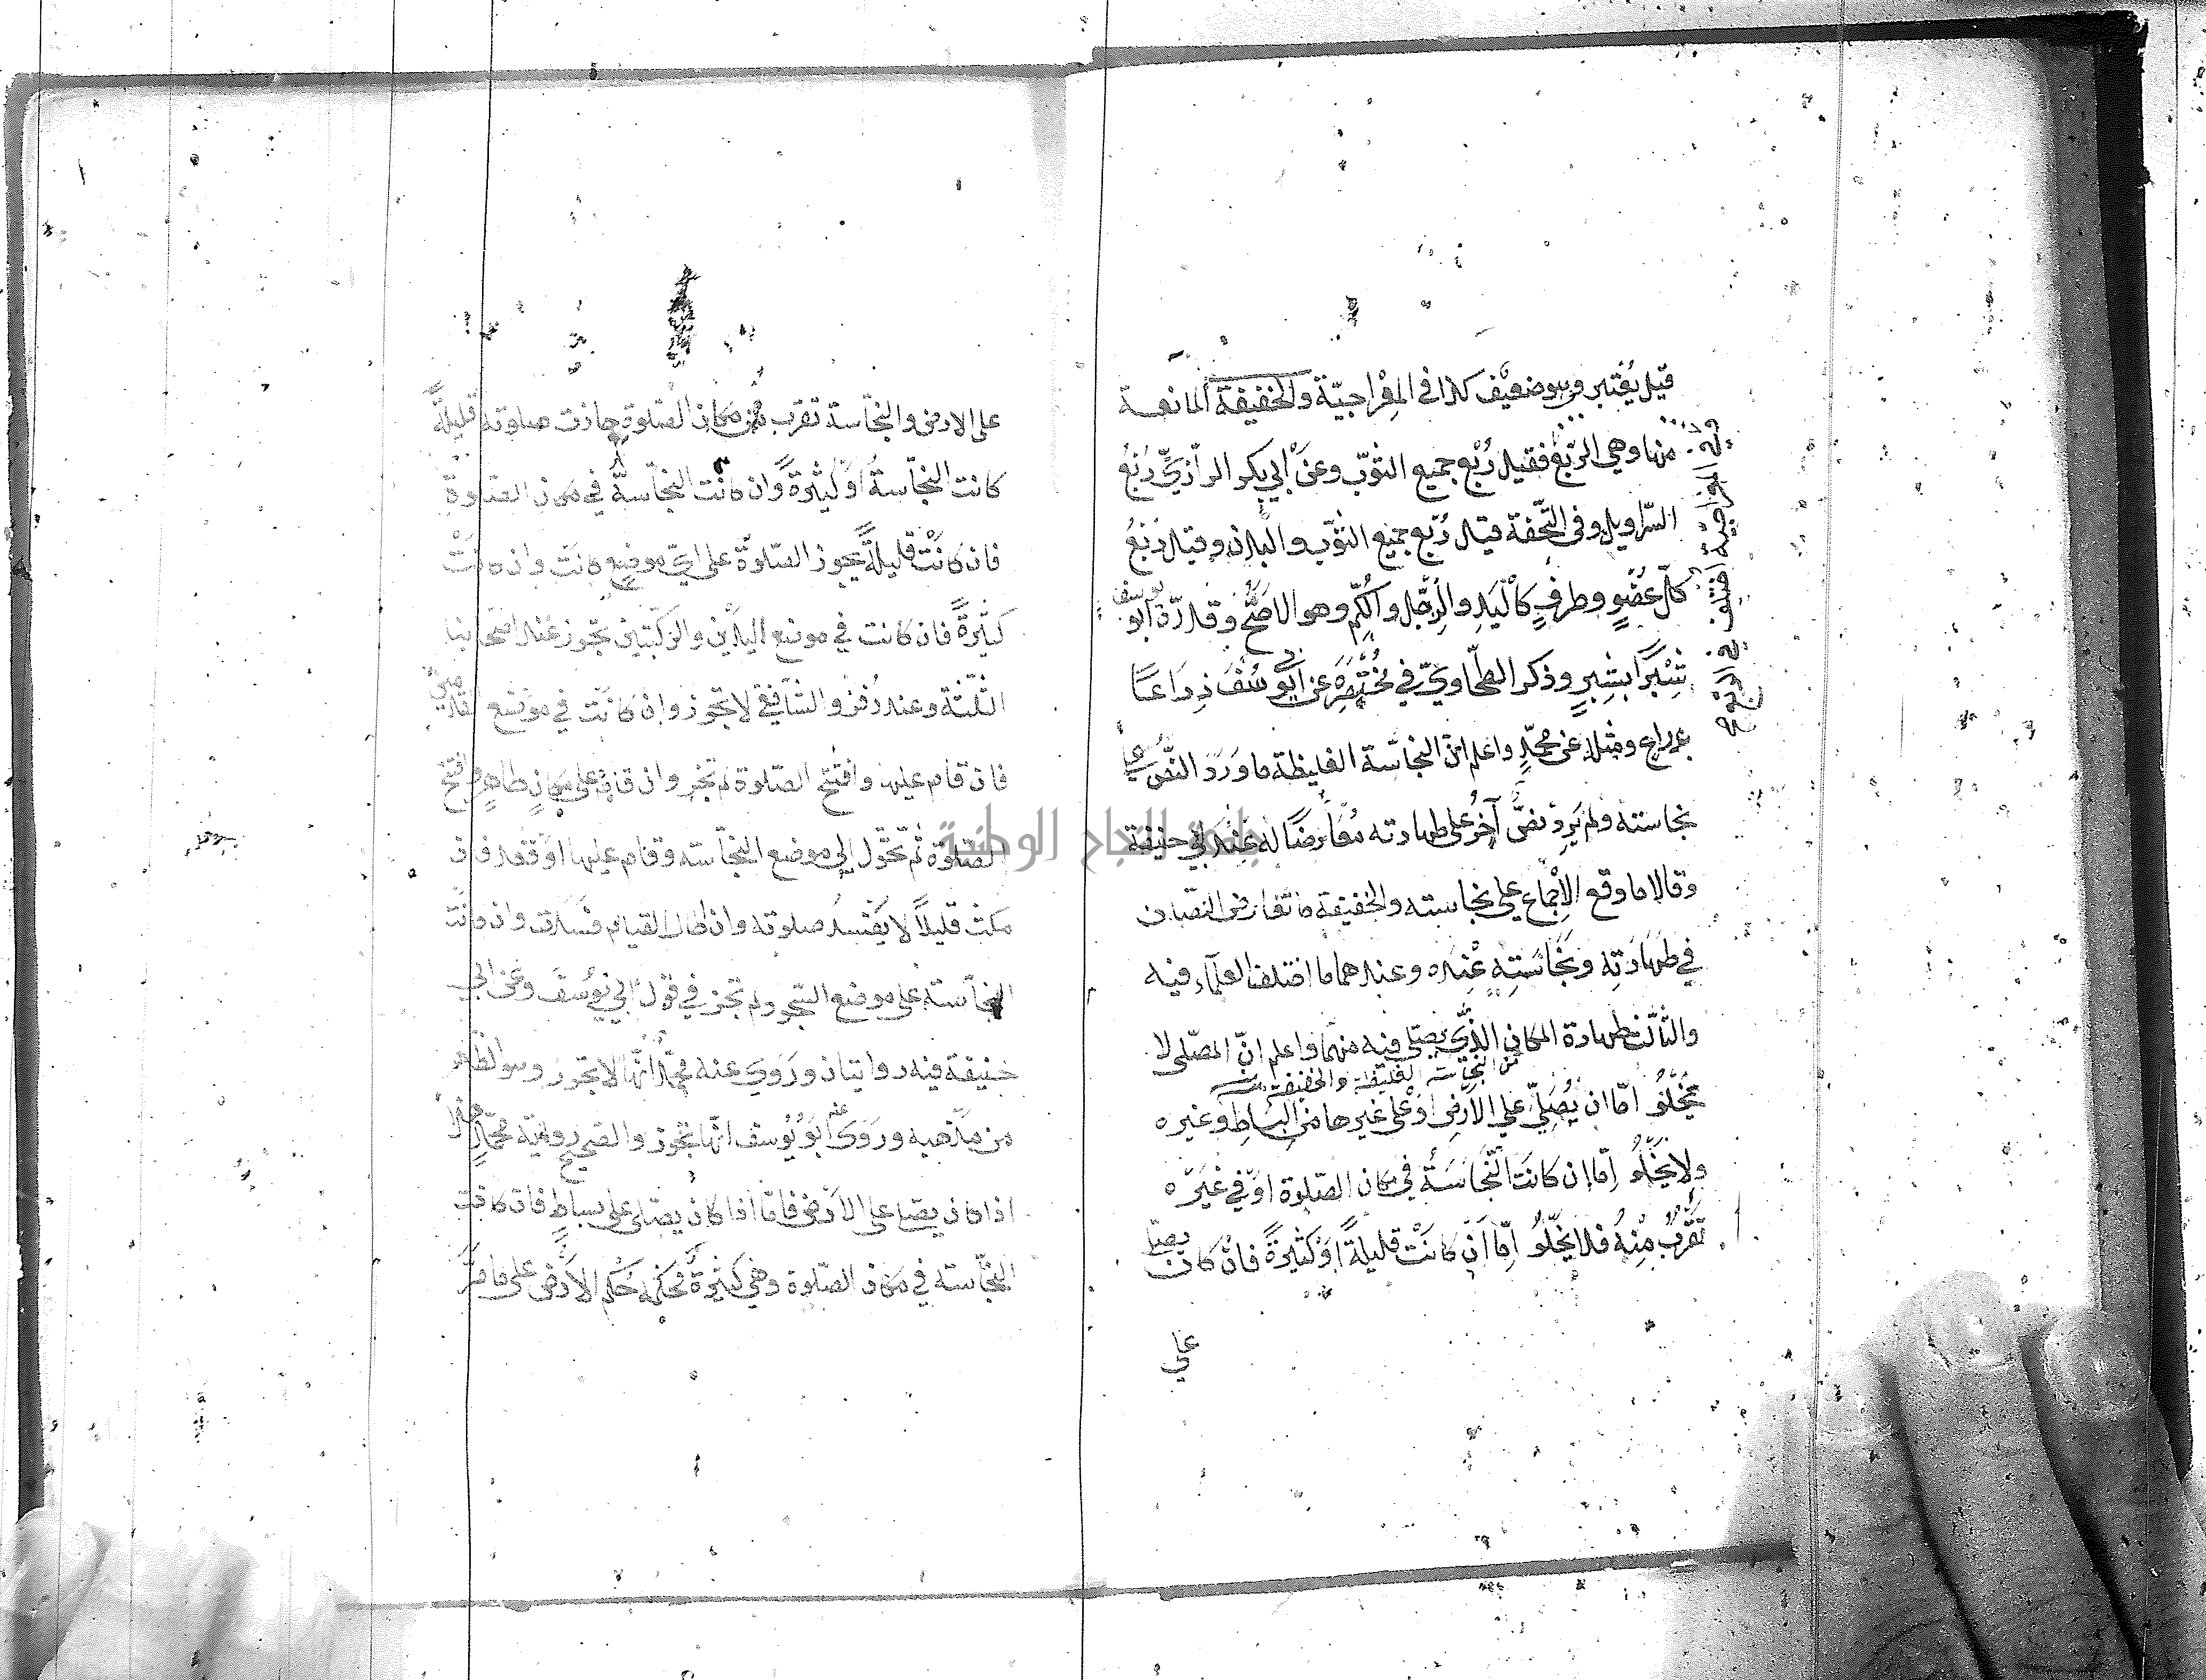 قيل يُعْتبر وهو ضعيف كذا في المِعْراجيّة والخفيفة المانعة
منها وهي الرّبع فقيل رُبْع جميع الثوّب وعَنْ ابي بكر الرّازيّ رُبْعُ
السّراويل وفي التّحفة قيل رُبْع جميع الثوّب والبدن وقيل رُبْعُ
كلّ عُضْوٍ وطرفٍ كالْيَدِ والرِّجْل والكُمّ وهو الاصَحُّ وقدّره ابو يوسف
شِبْرًا بشِبرٍ وذكر الطّحاويّ في مُخْتَصَرِه عن ابي يوُسُفَ ذِرَاعًا
بذراع ومثله عن محمّدٍ واعلم انّ النجاسة الغليظة ما وَرَدَ النّصُّ على
نجاسته ولم يَرِدْ نصٌّ آخرُ على طهارته مُعَارِضًا له عِنْدَ ابي حنيفة
وقالا ما وقع الاِجْماع على نجاسته والخفيفة ما تعارض النصّان
في طَهَارَتِه ونَجَاسَتِه عِنْده وعندهما ما اختلف العلمآء فيه
والثّالث طهارة المكان الذّي يصلّي فيه منهما واعلم انّ المصلّى لا
من النجاسة الغليظة والخفيفة
يَخْلُو امّا ان يُصَلِّيَ على الاَرْضِ اَوْ على غيرها من البِسَاطِ وغيره
ولا يَخْلُو اِمّا اِن كانَت النَّجَاسَةُ في مكان الصّلوة اوْ في غَيْرِه
تقْرُبُ مِنْهُ فلا يَخْلُو اِمّا اَنْ كَانَتْ قليلةً اَوْ كَثيرةً فانْ كان يصلّى
على
على الارض والنجّاسة تقرب من مكان الصّلوة جازت صلوته قليلةً
كانت النّجاسةُ اَوْ كثيرةً وان كانَت النّجاسةُ في مكان الصّلوة
فان كانَتْ قليلةً يجوز الصّلوةُ على ايّ موضعٍ كانَت وان كانَتْ
كَثيرةً فان كانت في موضع اليدَين والرّكبتين تجوز عند اصحابنا
الثّلثة وعند زُفَرْ والشّافعيّ لا تجوز وان كانَت في موضع القدمين
فان قام عليها وافتتح الصّلوة لم تجز وان قام على مكانٍ طاهرٍ وافتتح
الصّلوة ثمّ تحَوّل الى موضع النّجاسة وقام عليها اَوْ قعد فان
مكث قليلاً لا يَفْسُدُ صلوته وان طال القيام فَسَدَت وان كانَت
النجاسة على موضع السّجود لم تجز في قول ابي يوُسُفَ وعَنْ ابي
حنيفة فيه روايتان ورَوَى عنه محمّدٌ انّها لا تجوز وهو الظّاهر
من مذهبه ورَوَى اَبوُ يوُسف عنه انّها تجوز والصّحيح رواية محمّدٍ هذا
اذا كان يصلّي على الاَرْض فامّا اذا كان يصلّى على بساطٍ فان كانَت
النجّاسة في مكان الصّلوة وهي كثيرةٌ فحكمه حُكم الاَرْض على ما مرَّ
جامعة النجاح الوطنية